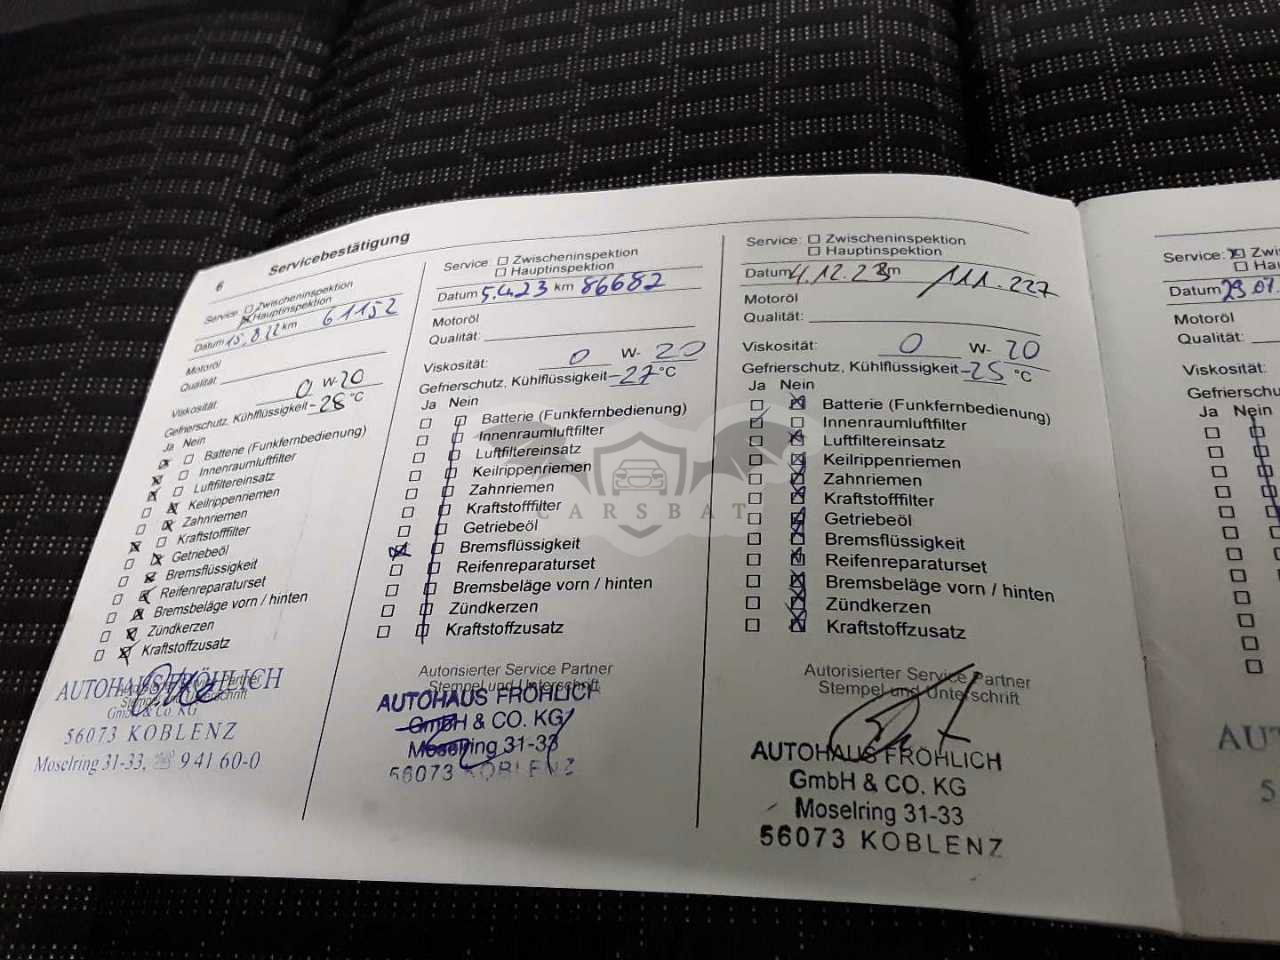 6
Servicebestätigung
Service: Zwischeninspektion
Hauptinspektion
Datum 15.8.22 km 61152
Motoröl
Qualität:
Viskosität: 0 W- 20
Gefrierschutz, Kühlflüssigkeit -28 °C
Ja Nein
Batterie (Funkfernbedienung)
Innenraumluftfilter
Luftfiltereinsatz
Keilrippenriemen
Zahnriemen
Kraftstofffilter
Getriebeöl
Bremsflüssigkeit
Reifenreparaturset
Bremsbeläge vorn / hinten
Zündkerzen
Kraftstoffzusatz
Stempel und Unterschrift
AUTOHAUS FRÖHLICH
GmbH & Co. KG
56073 KOBLENZ
Moselring 31-33, ☏ 9 41 60-0
Service: Zwischeninspektion
Hauptinspektion
Datum 5.4.23 km 86682
Motoröl
Qualität:
Viskosität: 0 W- 20
Gefrierschutz, Kühlflüssigkeit -27 °C
Ja Nein
Batterie (Funkfernbedienung)
Innenraumluftfilter
Luftfiltereinsatz
Keilrippenriemen
Zahnriemen
Kraftstofffilter
Getriebeöl
Bremsflüssigkeit
Reifenreparaturset
Bremsbeläge vorn / hinten
Zündkerzen
Kraftstoffzusatz
Autorisierter Service Partner
Stempel und Unterschrift
AUTOHAUS FRÖHLICH
GmbH & CO. KG
Moselring 31-33
56073 KOBLENZ
Service: Zwischeninspektion
Hauptinspektion
Datum 4.12.23 km 111.227
Motoröl
Qualität:
Viskosität: 0 W- 20
Gefrierschutz, Kühlflüssigkeit -25 °C
Ja Nein
Batterie (Funkfernbedienung)
Innenraumluftfilter
Luftfiltereinsatz
Keilrippenriemen
Zahnriemen
Kraftstofffilter
Getriebeöl
Bremsflüssigkeit
Reifenreparaturset
Bremsbeläge vorn / hinten
Zündkerzen
Kraftstoffzusatz
Autorisierter Service Partner
Stempel und Unterschrift
AUTOHAUS FRÖHLICH
GmbH & CO. KG
Moselring 31-33
56073 KOBLENZ
Service: Zwi
Hau
Datum
Motoröl
Qualität:
Viskosität:
Gefrierschu
Ja Nein
AUT
5
CARSBAT